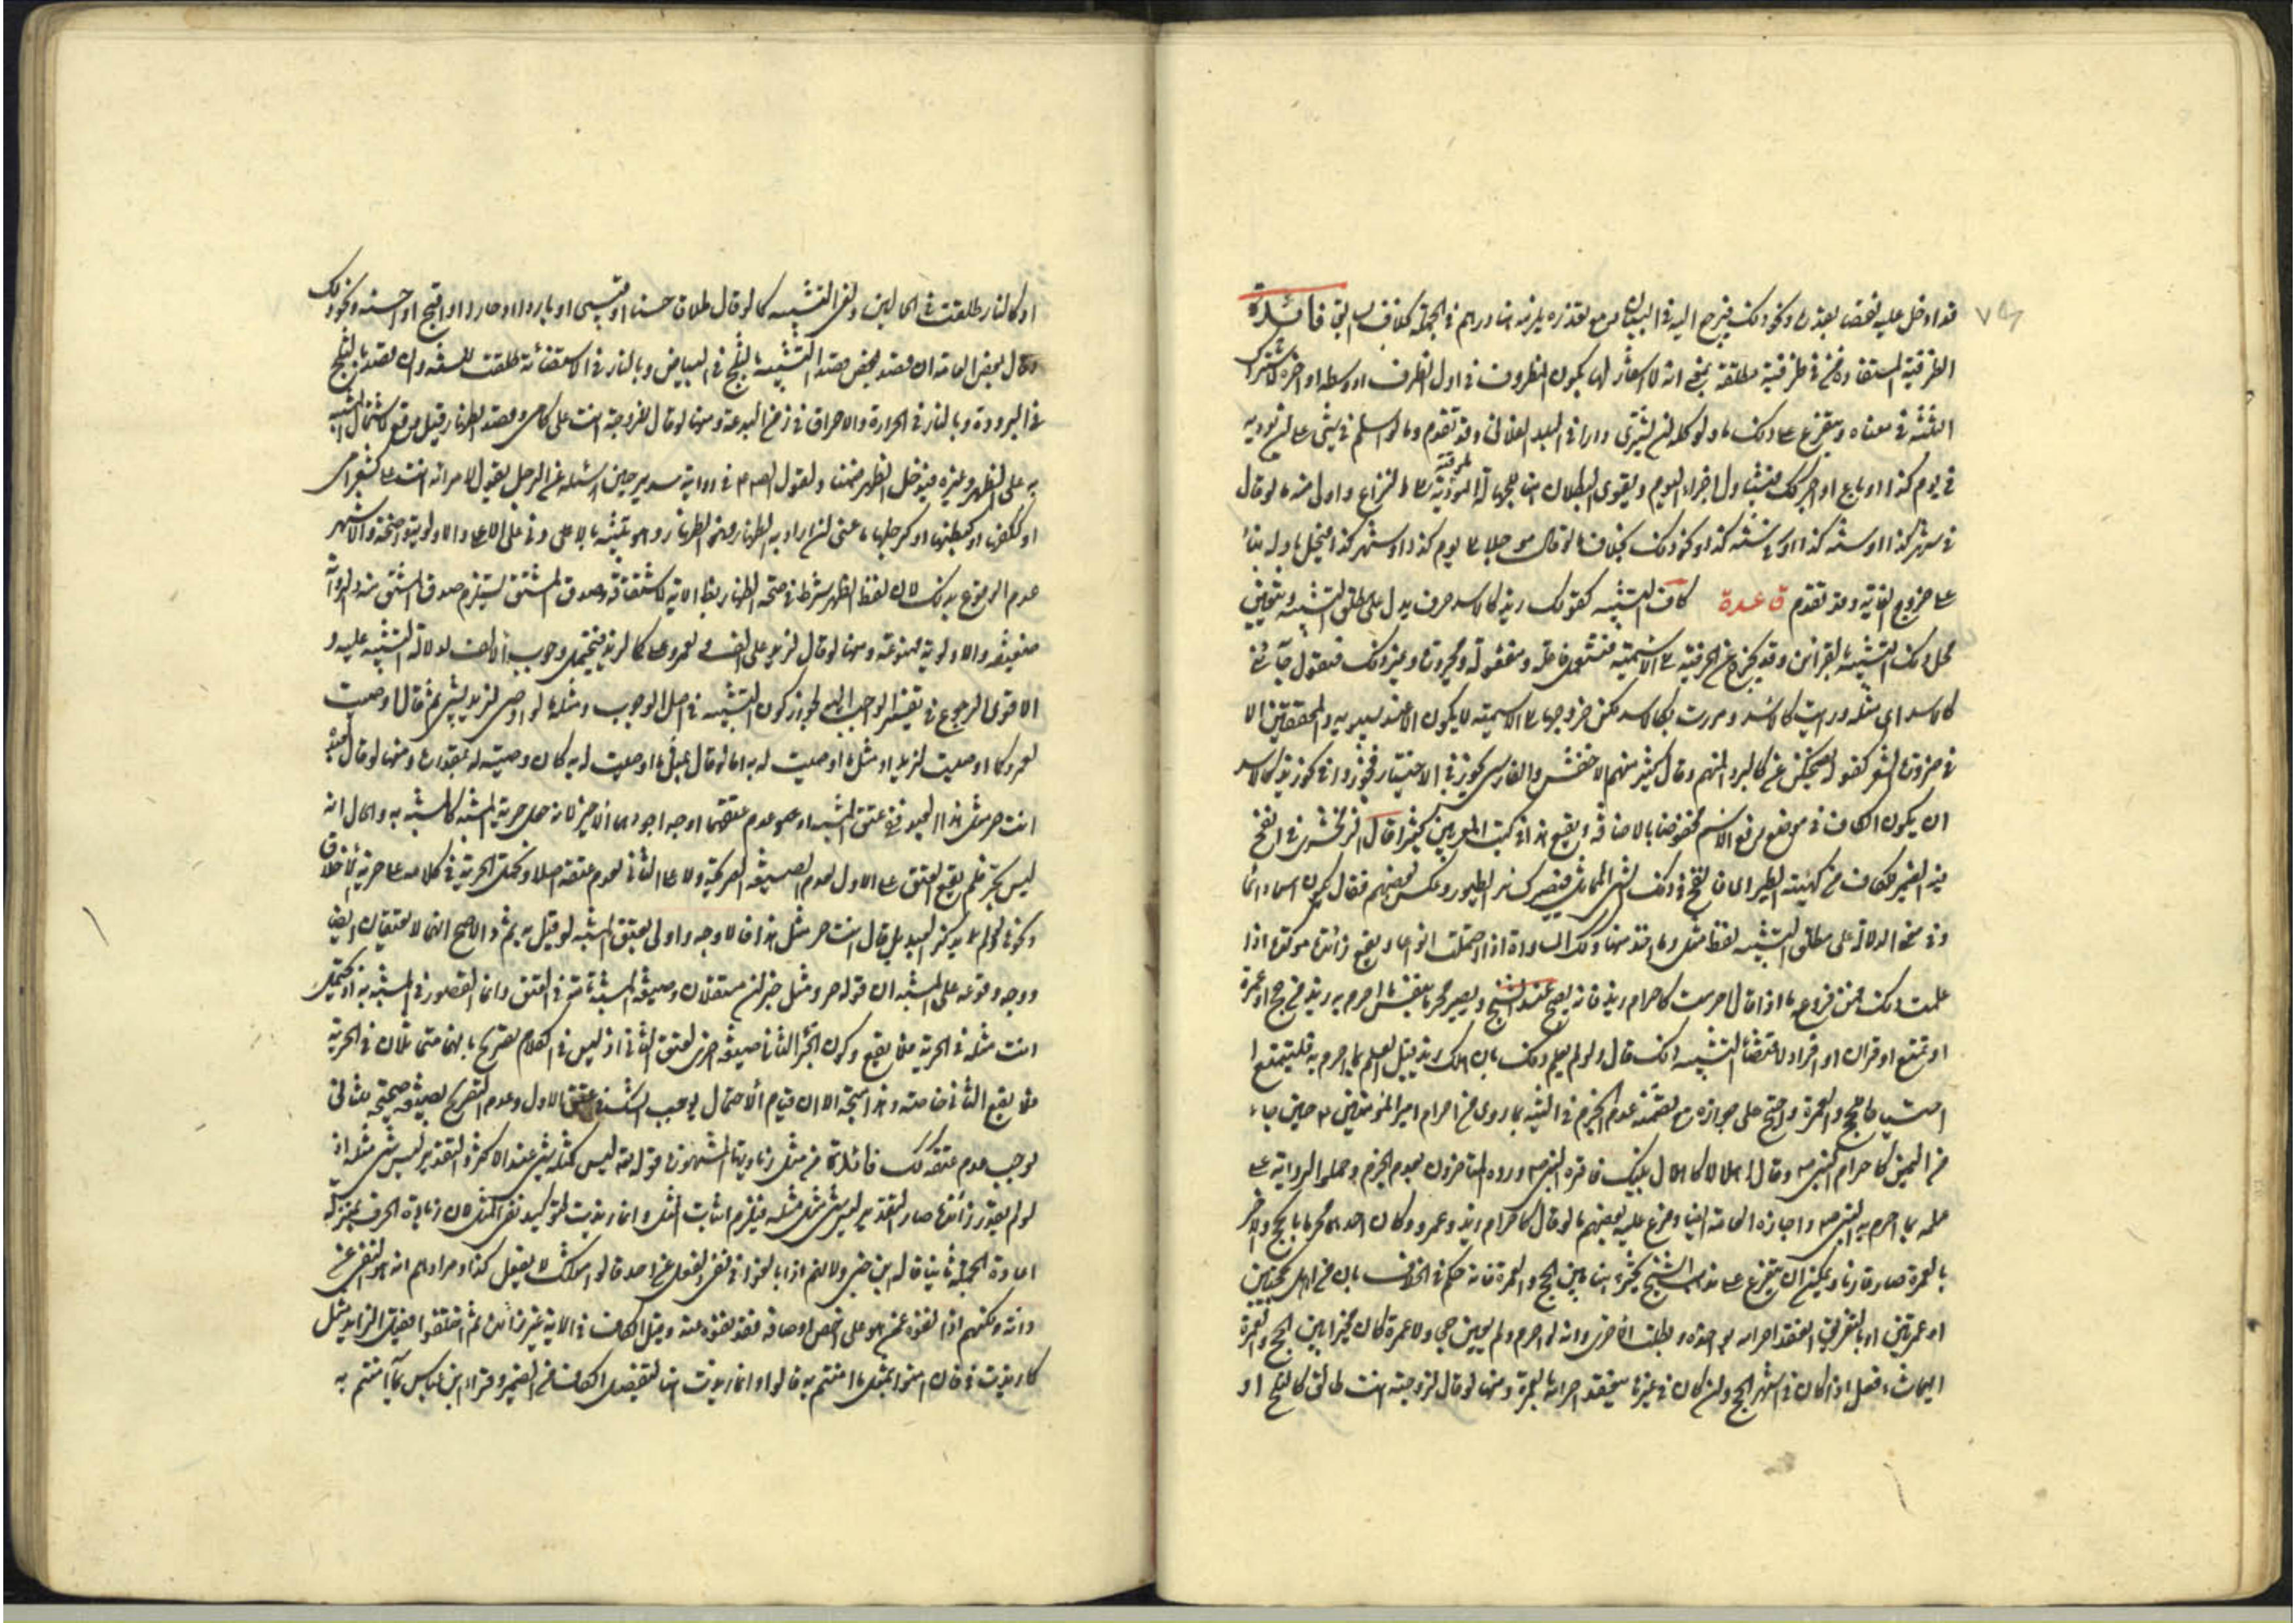 قد ادخل عليه نقصا بقدره ونحو ذلك فيرجع اليه في البيان ومع تعذره يلزمه ما دراهم في الجملة بخلاف السابق فائدة
الظرفية المستفادة من في ظرفية مطلقة بمعنى انه لا اشعار لها بكون المظروف في اول الظرف او وسطه او اخره
في معناه ويتفرع على ذلك ما لو وكله لمن يشتري دارا في البلد الفلاني وقد تقدم وما لو اسلم في شيء على ان يؤديه
في يوم كذا او باع او اجر كذلك فيتناول اجزاء اليوم ويقوى البطلان هنا للجهالة المؤدية الى النزاع واولى منه ما لو قال
في شهر كذا او سنة كذا او في سنة كذا ونحو ذلك بخلاف ما لو قال مؤجلا الى يوم كذا او شهر كذا فيحل باوله بناء
على خروج الغاية وقد تقدم قاعدة كاف التشبيه كقولك زيد كالاسد حرف يدل على مطلق التشبيه ويتعين
محل ذلك التشبيه بالقرائن وقد يخرج عن الحرفية الى الاسمية فتستعمل فاعلة ومفعولة ومجرورة وغير ذلك فتقول جائني
كالاسد اي مثله ورايت كالاسد ومررت بكالاسد لكن خروجها الى الاسمية لا يكون الا عند سيبويه والمحققين الا
في ضرورة الشعر كقوله يضحكن عن كالبرد المنهم وقال كثير منهم الاخفش والفارسي يجوز في الاختيار فجوزوا في نحو زيد كالاسد
ان يكون الكاف في موضع رفع الاسم مخفوضا بالاضافة ويقع هذا في كتب المعربين كثيرا قال الزمخشري في انفخ
فيه الضمير للكاف من كهيئة الطير اي فانفخ في ذلك الشيء المماثل فيصير كسائر الطيور وعكس بعضهم فقال يكون اسما دائما
وفي معنى الدلالة على مطلق التشبيه لفظ مثل وما اخذ منها وكذلك المساواة اذا احتملت انواعا ويقع زائدة مؤكدة اذا
علمت ذلك فمن فروعه ما اذا قال احرمت كاحرام زيد فانه يصح عند الشيخ ويصير محرما بنفس ما احرم به زيد من حج او عمرة
او تمتع او قران او افراد لاقتضاء التشبيه ذلك قال ولو لم يعلم ذلك بان هلك زيد قبل العلم بما احرم به فليتمتع ا
احتياطا للحج والعمرة واحتج على جوازه مع تضمنه عدم الجزم في النية بما روي من احرام امير المؤمنين ع حين جاء
من اليمن كاحرام النبي ص وقال اهلالا كاهلال نبيك فاقره النبي ص ورده المتاخرون لعدم الجزم وحملوا الرواية على
علمه بما احرم به النبي ص واجازه العامة ايضا وفرع عليه بعضهم ما لو قال كاحرام زيد وعمرو وكان احدهما محرما بالحج والاخر
بالعمرة صار قارنا ويمكن ان يتفرع على مذهب الشيخ تخيره هنا بين الحج والعمرة فانه حكم في الخلاف بان من اهل بحجتين
او عمرتين او بالتفريق انعقد احرامه بواحدة وبطلت الاخرى وانه لو احرم ولم يعين حجا ولا عمرة كان مخيرا بين الحج والعمرة
ايهما شاء فعل اذا كان في اشهر الحج وان كان في غيرها ينعقد احرامه بالعمرة ومنها لو قال لزوجته انت طالق كالثلج او
او كالنار طلقت في الحالين ولغى التشبيه كما لو قال طلاق حسنا او قبيحا او باردا او حارا او اقبح او احسنه ونحو ذلك
وقال بعض العامة ان قصد التشبيه بالثلج في البياض وبالنار في الاستضائة طلقت للسنة وان قصد بالثلج
في البرودة وبالنار في الحرارة والاحراق في زمن البدعة ومنها لو قال لزوجته انت علي كامي وقصد الظهار قيل يقع لاشتمال التشبيه
به على الظهر وغيره فيدخل الظهر ضمنا ولقول الصادق ع في رواية سدير حين سئله عن الرجل يقول لامراته انت علي كشعر امي
او ككفها او كبطنها او كرجلها ما عنى ان اراد به الظهار فهو الظهار وهو تنبيه بالادنى على الاعلى والاولوية واضحة والاشهر
عدم الوقوع بذلك لان لفظ الظهر شرط في صحة الظهار بظاهر الاية لاشتقاقه وصدق المشتق يستلزم صدق المشتق منه والرواية
ضعيفة والاولوية ممنوعة ومنها لو قال لزيد علي الف ولعمرو علي كما لزيد فيحتمل وجوب الالف لدلالة التشبيه عليه و
الاقوى الرجوع في تفسير الواجب اليه لجواز كون التشبيه في اصل الوجوب ومثله ما لو اوصى لزيد بشيء ثم قال اوصيت
لعمرو كما اوصيت لزيد او مثل ما اوصيت له به اما لو قال بمثل ما اوصيت له به كان وصيته له بقدره ومنها لو قال لعبده
انت حر مثل هذا العبد ففي عتق المشبه او هما او عدم عتقهما اوجه اجودها الاخير لانه علق حرية المشبه كالمشبه به والحال انه
ليس بحر فلم يقع العتق على الاول لعدم الصيغة الصريحة ولا على الثاني لعدم عتقه اصلا ويحتمل الحرية في كلامه على حرية الاخلاق
ونحوها ولو لم يذكر العبد بل قال انت حر مثل هذا فالاوجه واولى بعتق المشبه لو قيل به ثم والاصح انهما لا يعتقان ايضا
ووجه وقوعه على المشبه ان قوله حر ومثل خبران مستقلان وصيغة المشبه تامة في العتق وانما القصور في المشبه به او يحتمل
انت مثله في الحرية فلا يقع وكون الخبر الثاني صيغة اخرى لعتق الثاني اذ ليس في الكلام تصريح بانهما متماثلان في الحرية
فلا يقع الثاني خاصة وهذا متجه الا ان قيام الاحتمال يوجب الشك في عتق الاول وعدم التصريح بصيغة صحيحة للثاني
يوجب عدم عتقه كذلك فائدة من مثل زيادتها المشهورة قوله تعالى ليس كمثله شيء عند الاكثر والتقدير ليس شيء مثله اذ
لو لم يقدر زائدة صار التقدير ليس شيء مثل مثله فيلزم اثبات المثل وانما زيدت لتوكيد نفي المثل لان زيادة الحرف بمنزلة
اعادة الجملة ثانيا قاله ابن جني ولانهم اذا بالغوا في نفي الفعل عن احد قالوا مثلك لا يفعل كذا ومرادهم انما هو النفي عن
ذاته ولكنهم اذا نفوه عمن هو على اخص اوصافه فقد نفوه عنه وقيل الكاف في الاية غير زائدة ثم اختلفوا فقيل الزائد مثل
كما زيدت في فان امنوا بمثل ما امنتم به قالوا وانما زيدت هنا لتفصل الكاف من الضمير وقراءة ابن عباس بما آمنتم به